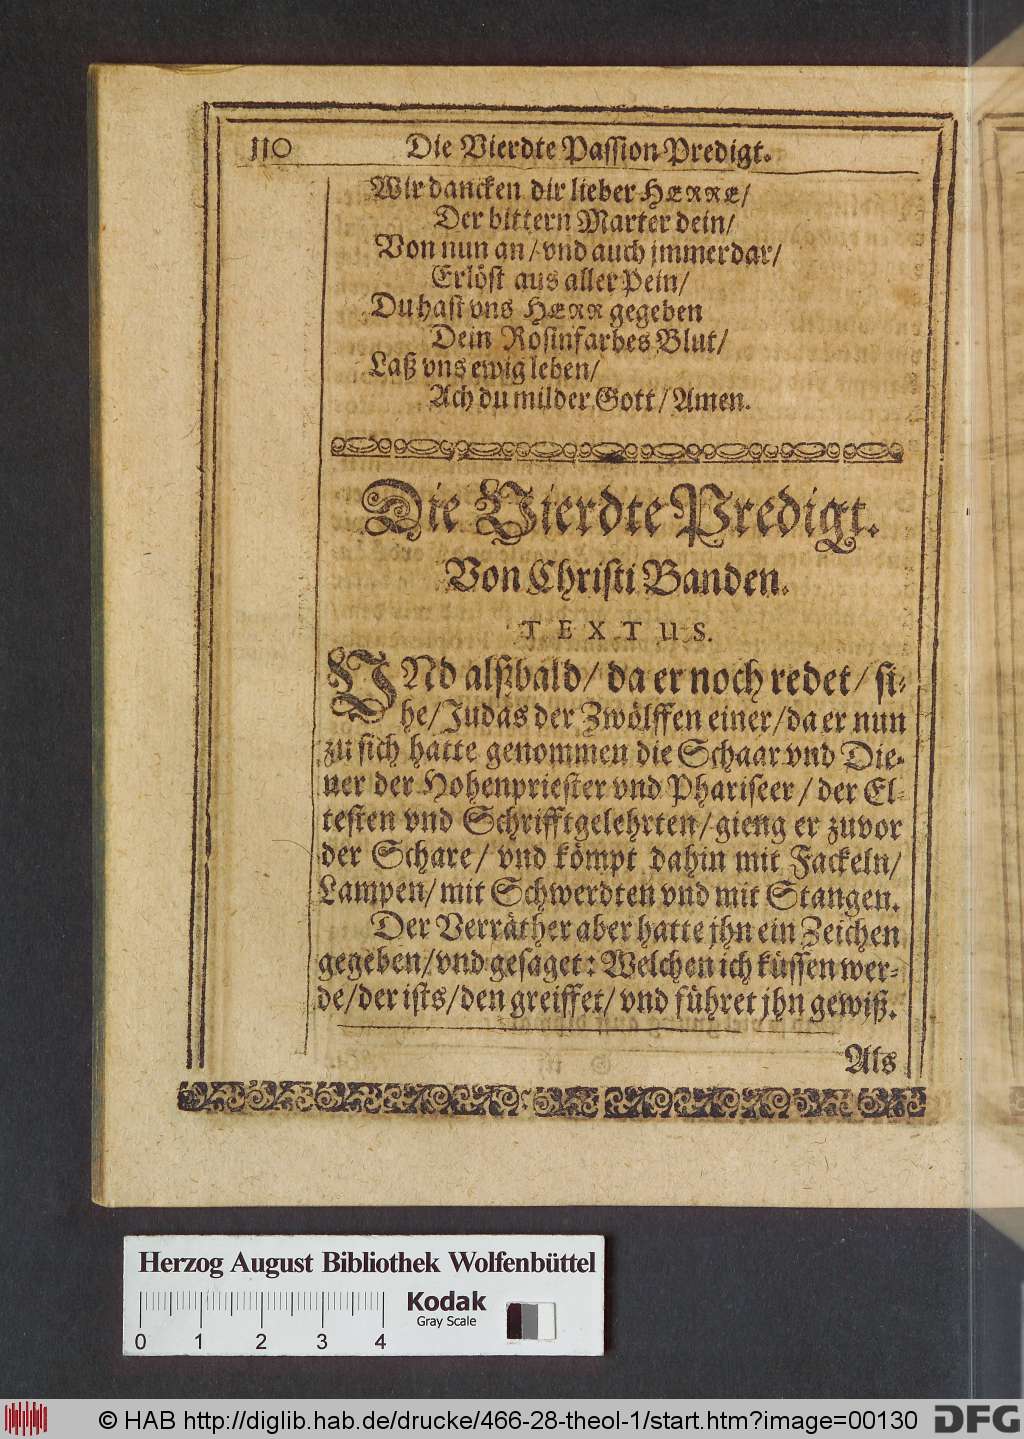 110 Die Vierdte Passion Predigt.
Wir dancken dir lieber HERRE/
Der bittern Marter dein/
Von nun an/ vnd auch jmmerdar/
Erlöst aus aller Pein/
Du hast vns HERR gegeben
Dein Rosinfarbes Blut/
Laß vns ewig leben/
Ach du milder Gott/ Amen.
Die Vierdte Predigt.
Von Christi Banden.
TEXTUS.
VNd alßbald/ da er noch redet/ si-
he/ Judas der Zwölffen einer/ da er nun
zu sich hatte genommen die Schaar vnd Die-
ner der Hohenpriester vnd Phariseer/ der El-
testen vnd Schrifftgelehrten/ gieng er zuvor
der Schare/ vnd kömpt dahin mit Fackeln/
Lampen/ mit Schwerdten vnd mit Stangen.
Der Verräther aber hatte jhn ein Zeichen
gegeben/ vnd gesaget: Welchen ich küssen wer-
de/ der ists/ den greiffet/ vnd führet jhn gewiß.
Als
Herzog August Bibliothek Wolfenbüttel
Kodak
Gray Scale
0 1 2 3 4
© HAB http://diglib.hab.de/drucke/466-28-theol-1/start.htm?image=00130
DFG